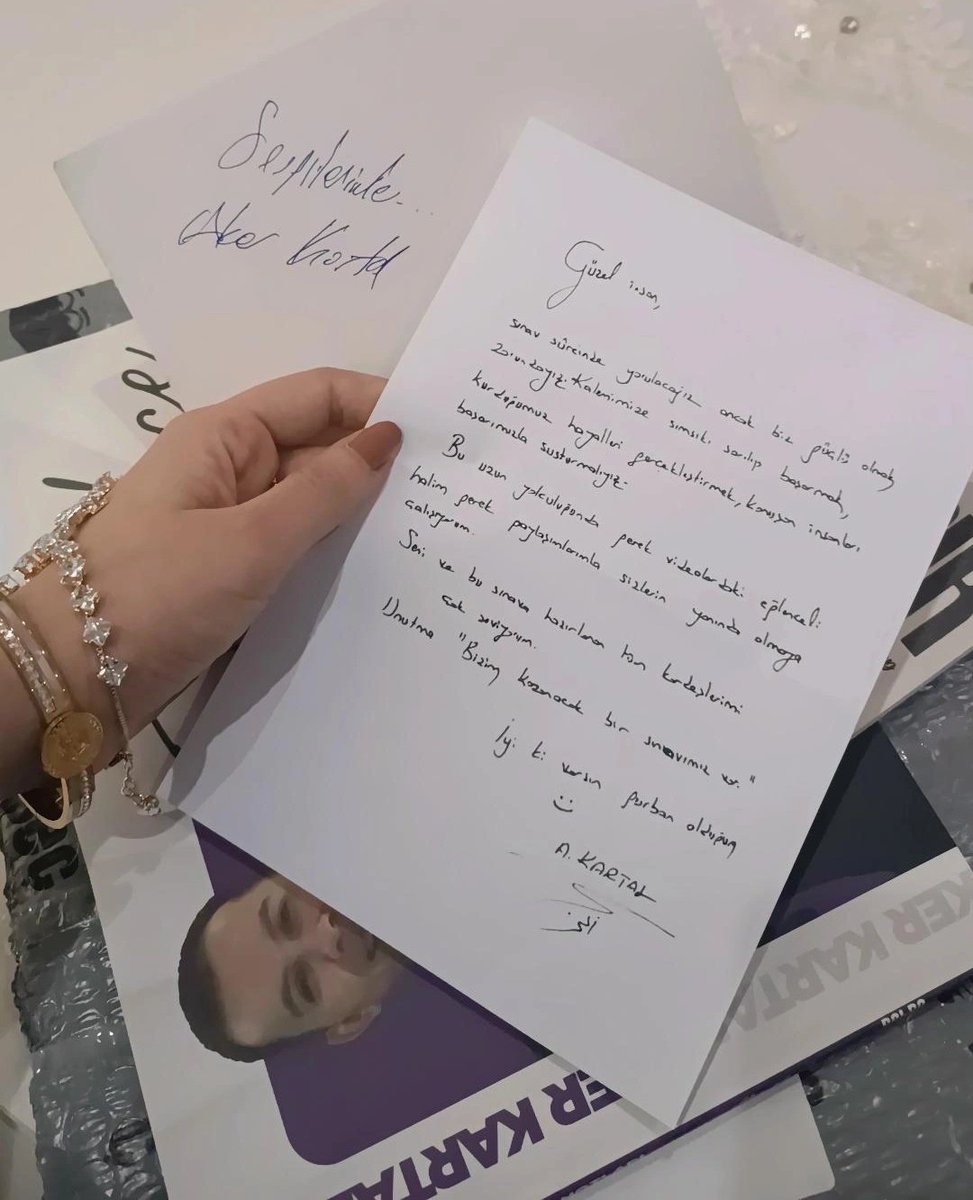 Sevgilerimle...
Aker Kartal
Güzel insan,
sınav sürecinde yorulacağız ancak biz güçlü olmak
zorundayız. Kalemimize sımsıkı sarılıp başarmak,
kurduğumuz hayalleri gerçekleştirmek, konuşan insanları
başarımızla susturmalıyız.
Bu uzun yolculuğunda gerek videolardaki eğlenceli
halim gerek paylaşımlarımla sizlerin yanında olmaya
çalışıyorum.
Seni ve bu sınava hazırlanan tüm kardeşlerimi
çok seviyorum.
Unutma "Bizim kazanacak bir sınavımız var."
İyi ki varsın gurban olduğum
A. KARTAL
KER KARTA
ER KARTAL